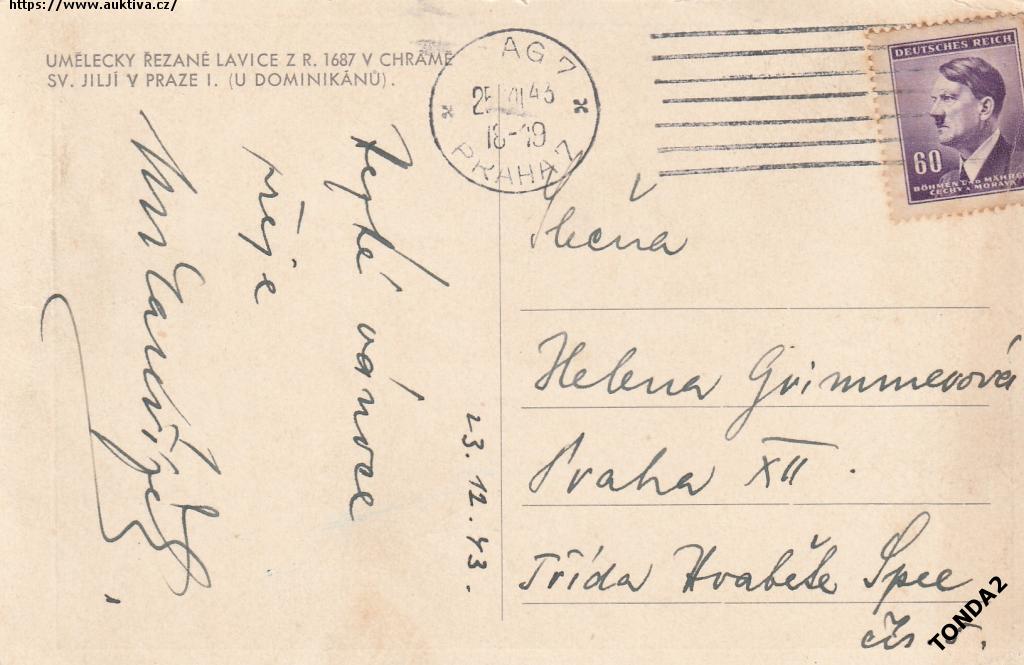 https://www.auktiva.cz/
UMĚLECKY ŘEZANÉ LAVICE Z R. 1687 V CHRÁMĚ
SV. JILJÍ V PRAZE I. (U DOMINIKÁNŮ).
AG 7
25 XII 43
18-19
PRAHA
DEUTSCHES REICH
60
BÖHMEN UND MÄHREN
ČECHY A MORAVA
Teplé vánoce
přeje
23.12.43.
Slečna
Helena Grimmerová
Praha XII.
Třída Hraběte Spee
TONDA2